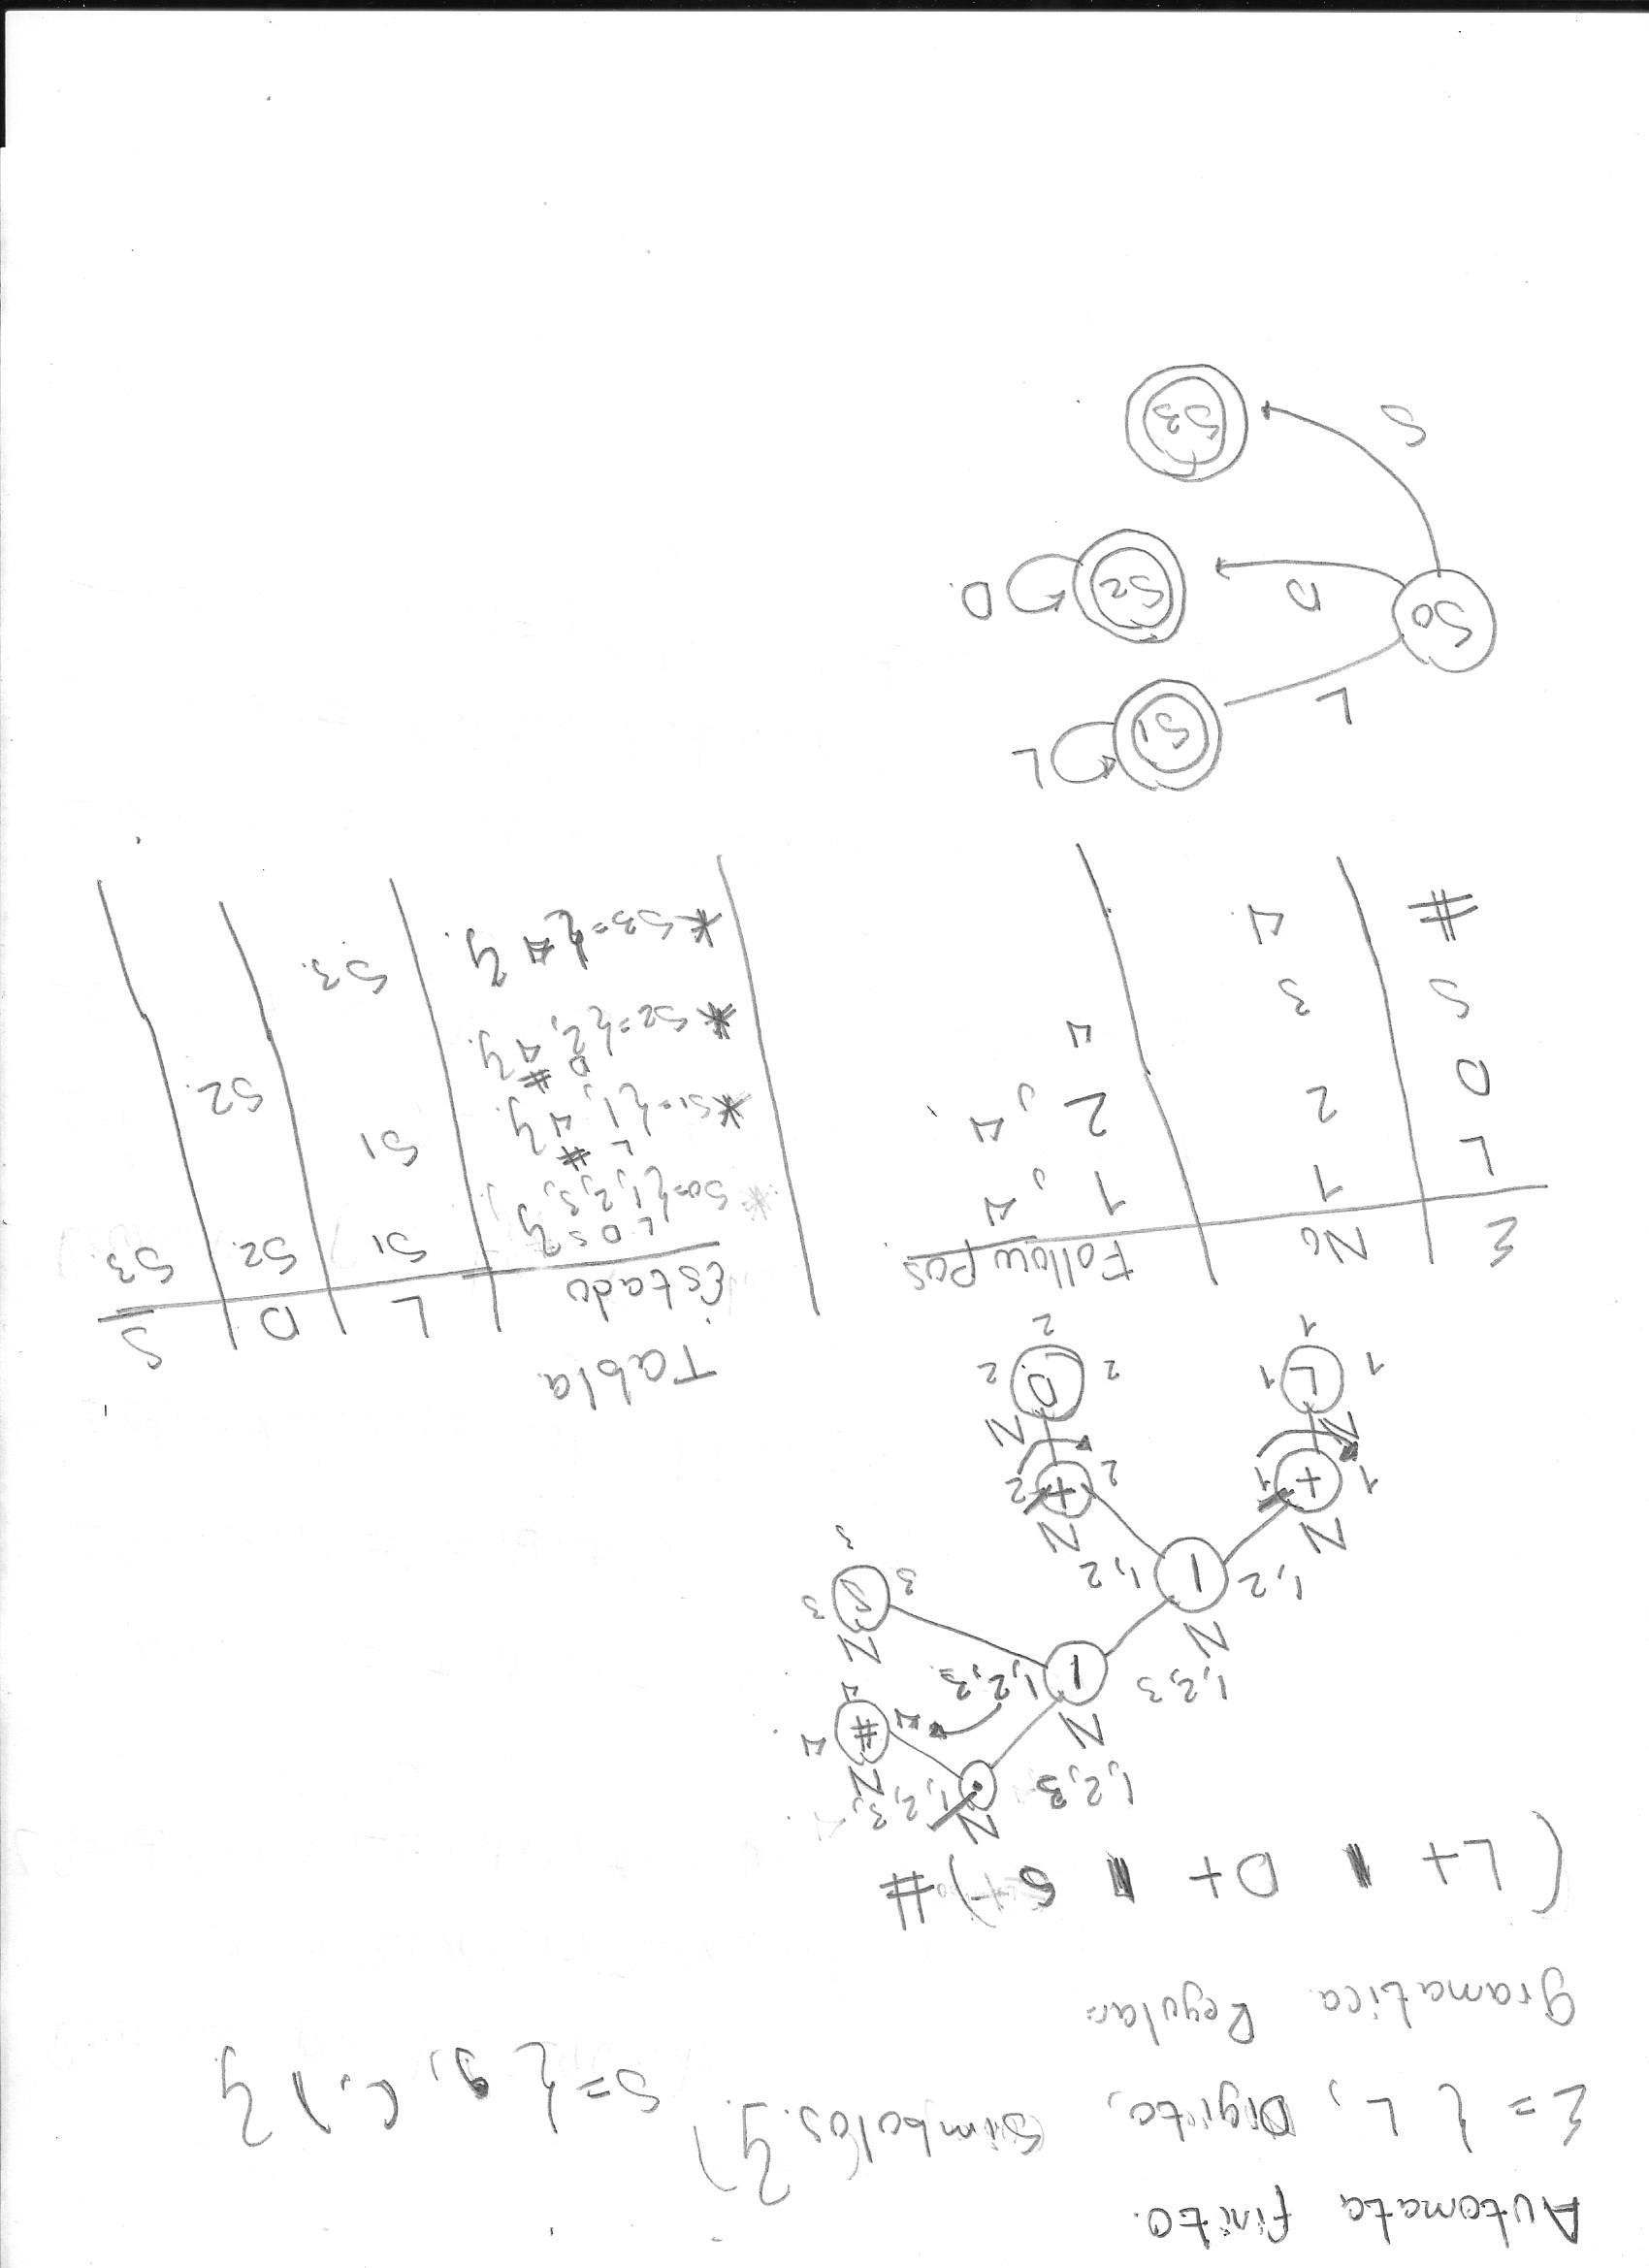 Automata finito.
Σ = { L, Digito, Simbolos. }
S = { , (, ) }
Gramatica Regular:
( L+ | D+ | S ) #
N
1,2,3 • 1,2,3,
N
N
4 # 4
4
1,2,3 | 1,2,3
N
N
3 S 3
3
1,2 | 1,2
N N
1 + 1 2 + 2
N N
1 L 1 2 D 2
1 2
Σ No Follow pos
L 1 1, 4
D 2 2, 4.
S 3 4
# 4.
Tabla.
Estado L D S
L D S
* S0={1,2,3, } S1 S2. S3.
L #
*S1={1, 4}. S1
D #
*S2={2, 4}. S2.
*S3={4}. S3.
S0 L S1 L
D S2 D.
S S3